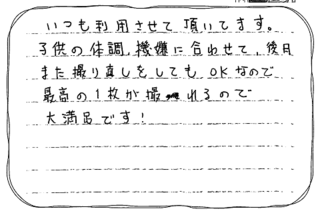 いつも利用させて頂いてます。
子供の体調、機嫌に合わせて、後日
また撮り直しをしても OKなので
最高の1枚が撮れるので
大満足です!